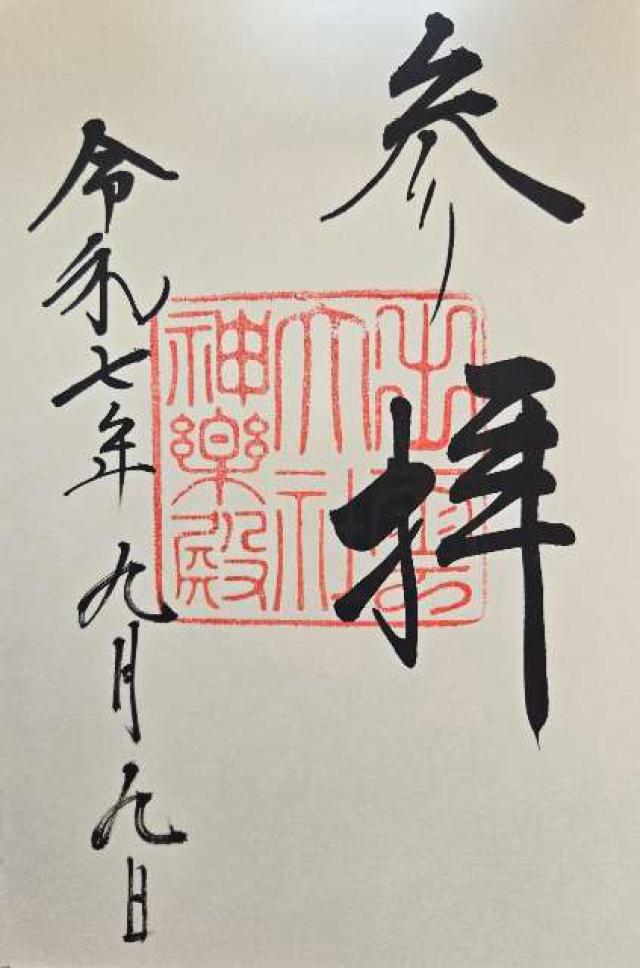 参拝
出雲
大社
神楽殿
令和七年九月九日